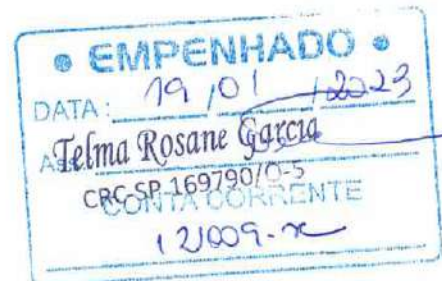 • EMPENHADO •
DATA: 19 / 01 / 2023
ASS
Telma Rosane Garcia
CRC-SP 169790/O-5
CONTA CORRENTE
12009-x